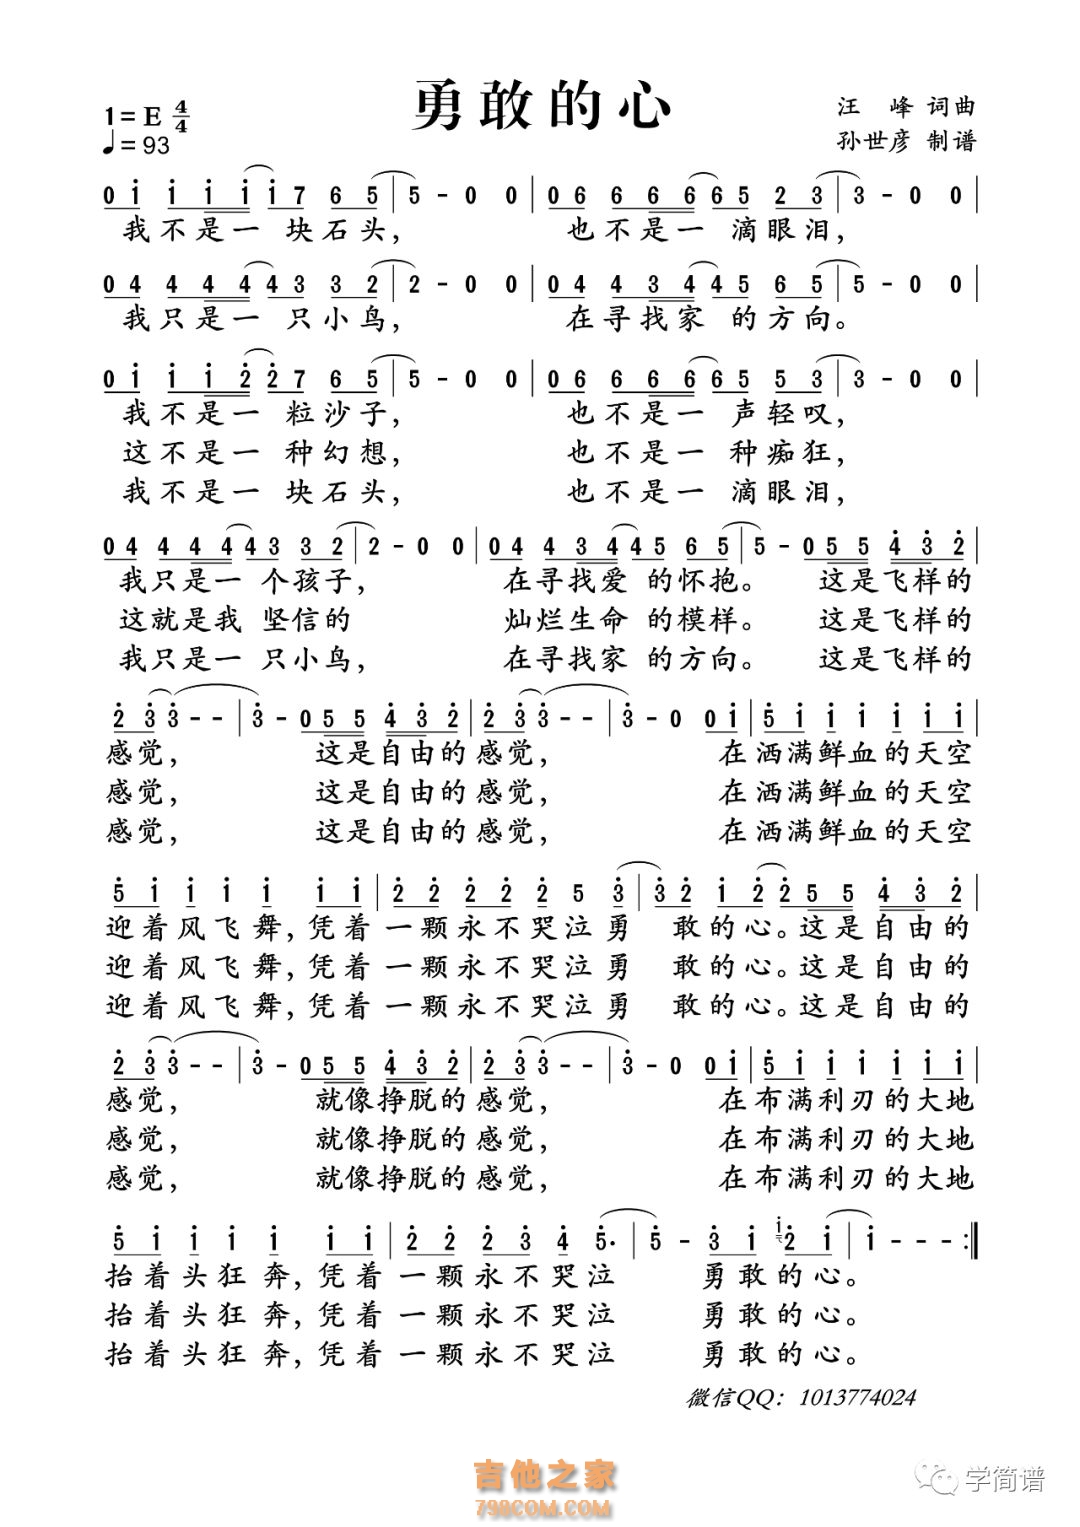 勇敢的心
1=E 4/4
♩=93
汪 峰 词曲
孙世彦 制谱
0 1 1 1 1 1 7 6 5 | 5 - 0 0 | 0 6 6 6 6 6 5 2 3 | 3 - 0 0 |
我不是一 块石头， 也不是一 滴眼泪，
0 4 4 4 4 4 3 3 2 | 2 - 0 0 | 0 4 4 3 4 4 5 6 5 | 5 - 0 0 |
我只是一 只小鸟， 在寻找家 的方向。
0 1 1 1 2 2 7 6 5 | 5 - 0 0 | 0 6 6 6 6 6 5 5 3 | 3 - 0 0 |
我不是一 粒沙子， 也不是一 声轻叹，
这不是一 种幻想， 也不是一 种痴狂，
我不是一 块石头， 也不是一 滴眼泪，
0 4 4 4 4 4 3 3 2 | 2 - 0 0 | 0 4 4 3 4 4 5 6 5 | 5 - 0 5 5 4 3 2 |
我只是一 个孩子， 在寻找爱 的怀抱。 这是飞样的
这就是我 坚信的 灿烂生命 的模样。 这是飞样的
我只是一 只小鸟， 在寻找家 的方向。 这是飞样的
2 3 3 - - | 3 - 0 5 5 4 3 2 | 2 3 3 - - | 3 - 0 0 1 | 5 1 1 1 1 1 1 1 |
感觉， 这是自由的 感觉， 在洒满鲜血的天空
感觉， 这是自由的 感觉， 在洒满鲜血的天空
感觉， 这是自由的 感觉， 在洒满鲜血的天空
5 1 1 1 1 1 1 | 2 2 2 2 2 5 3 | 3 2 1 2 2 5 5 4 3 2 |
迎着风飞舞，凭着 一颗永不哭泣勇 敢的心。这是自由的
迎着风飞舞，凭着 一颗永不哭泣勇 敢的心。这是自由的
迎着风飞舞，凭着 一颗永不哭泣勇 敢的心。这是自由的
2 3 3 - - | 3 - 0 5 5 4 3 2 | 2 3 3 - - | 3 - 0 0 1 | 5 1 1 1 1 1 1 1 |
感觉， 就像挣脱的 感觉， 在布满利刃的大地
感觉， 就像挣脱的 感觉， 在布满利刃的大地
感觉， 就像挣脱的 感觉， 在布满利刃的大地
5 1 1 1 1 1 1 | 2 2 2 3 4 5· | 5 - 3 1 1 2 1 | 1 - - - :‖
抬着头狂奔，凭着 一颗永不哭泣 勇敢的心。
抬着头狂奔，凭着 一颗永不哭泣 勇敢的心。
抬着头狂奔，凭着 一颗永不哭泣 勇敢的心。
微信QQ：1013774024
吉他之家
798COM.COM
学简谱